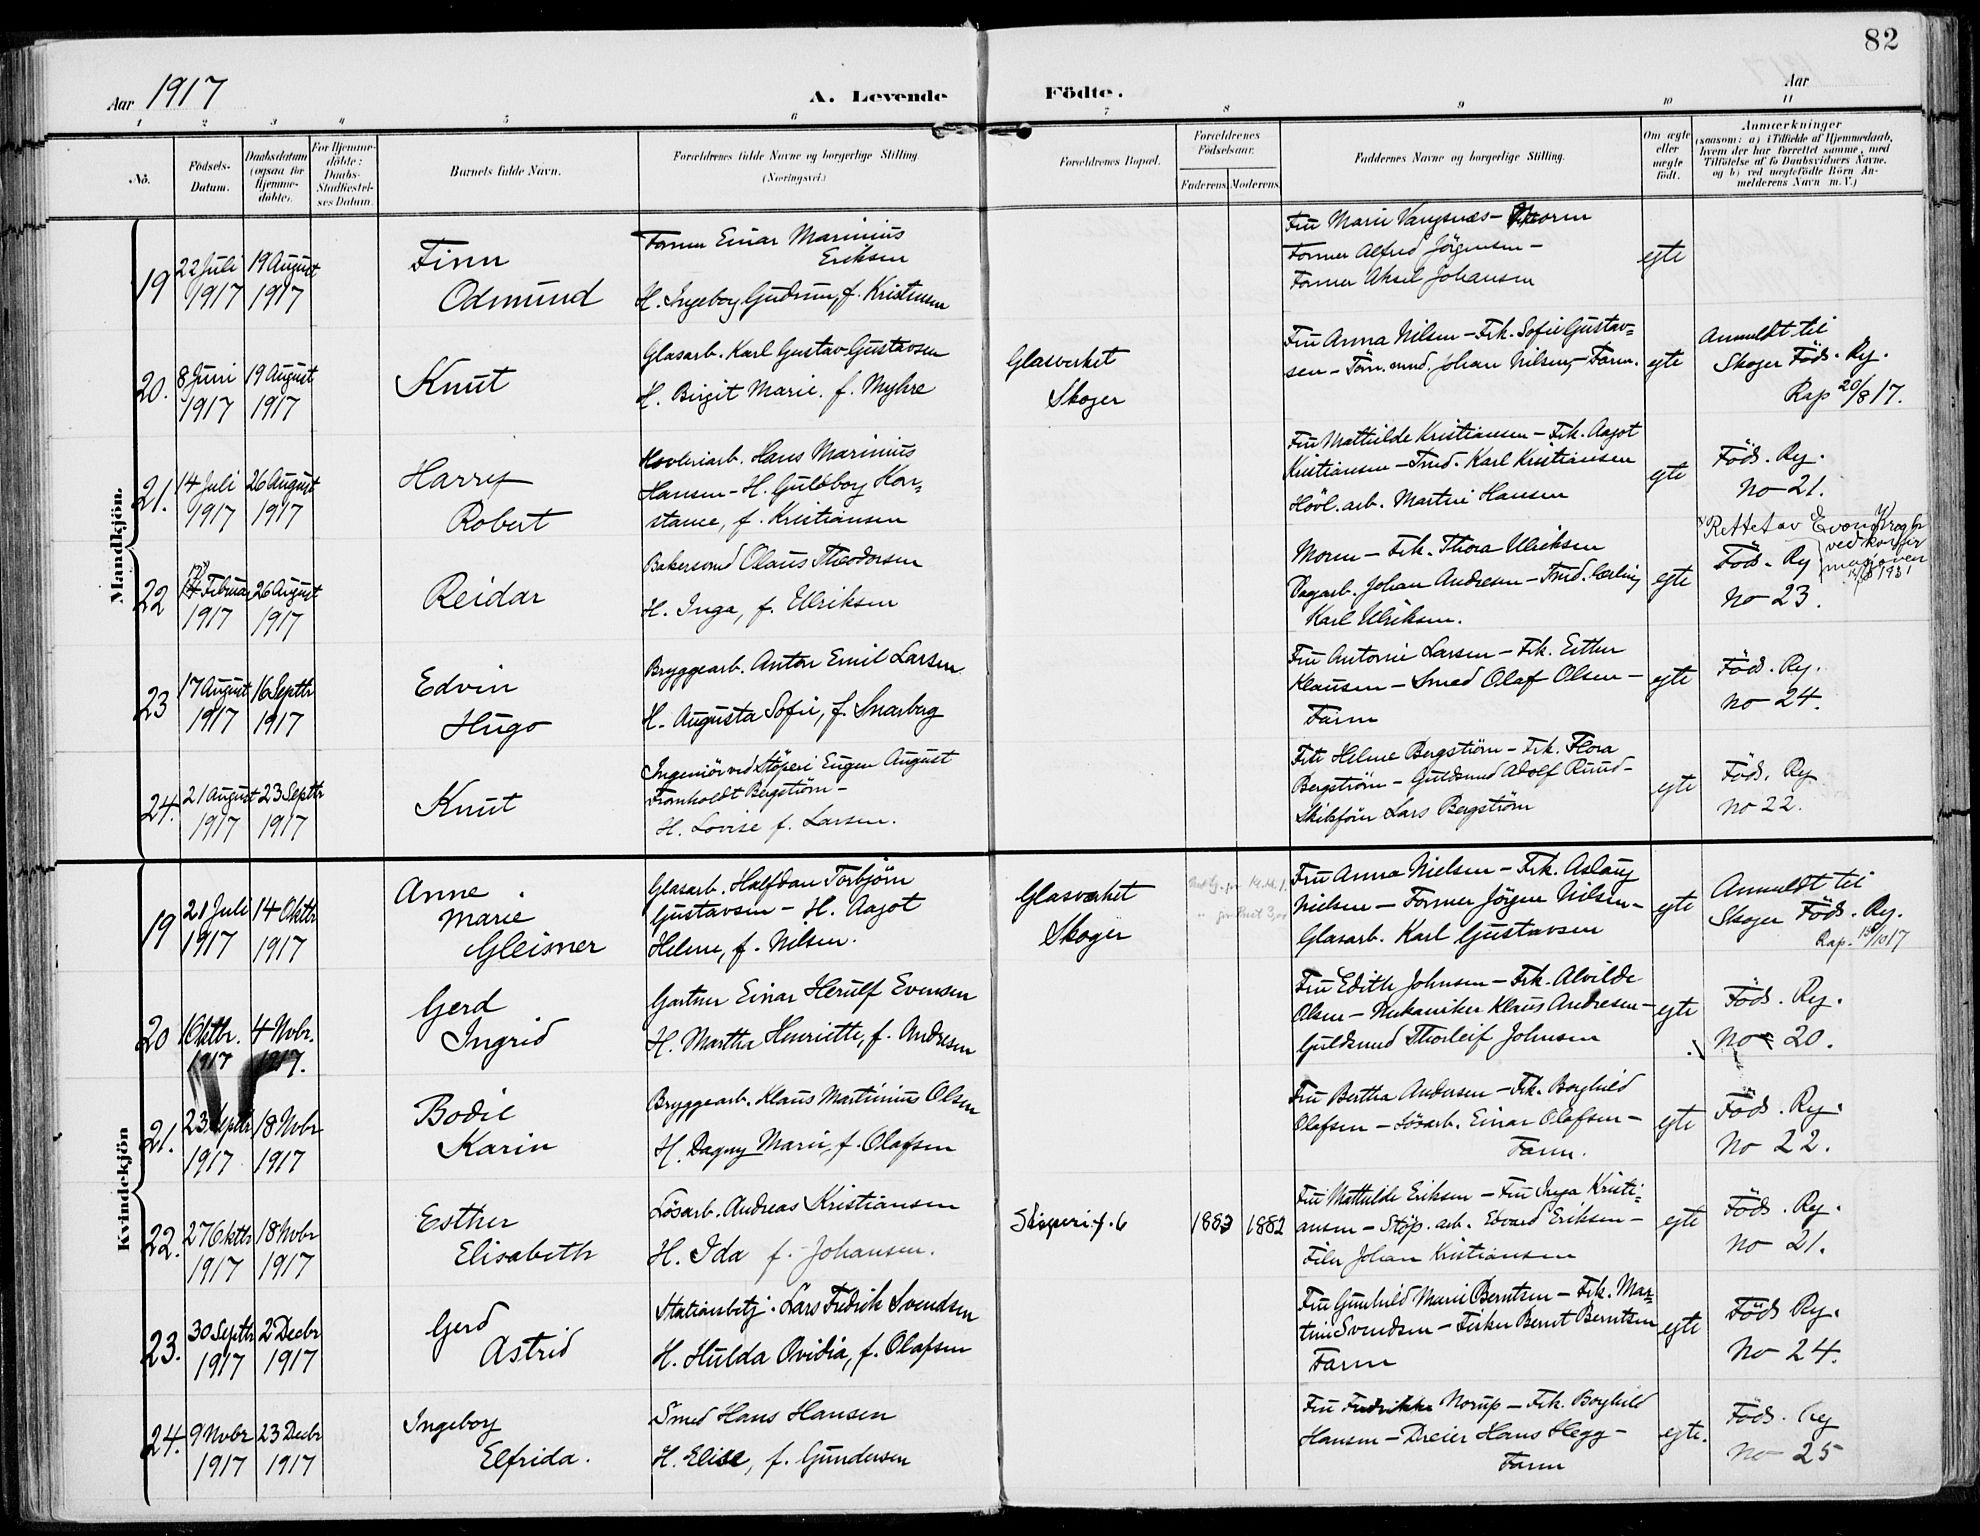 82
Aar 1917
A. Levende Födte.
Aar
1 2 3 4 5 6 7 8 9 10 11
No. Födsels-Datum. Daabsdatum (ogsaa for Hjemme-döbte). For Hjemme-döbte: Daabs-Stadfæstel-ses Datum. Barnets fulde Navn. Forældrenes fulde Navne og borgerlige Stilling. (Næringsvei.) Forældrenes Bopæl. Forældrenes Födselsaar. Faderens. Moderens. Faddernes Navne og borgerlige Stilling. Om ægte eller uægte födt. Anmærkninger (saasom: a) i Tilfælde af Hjemmedaab, hvem der har forrettet samme, med Tilföielse af to Daabsvidners Navne, og b) ved uægtefödte Börn An-melderens Navn m. V.)
Mandkjön.
19 22 Juli 1917 19 August 1917 Finn Odmund
Former Einar Marinius Eriksen
H. Ingeborg Gudrun, f. Kristensen
Fru Marie Vangsnes - Moren
Former Alfred Jörgensen -
Former Aksel Johansen
egte
20. 8 Juni 1917 19 August 1917 Knut
Glasarb. Karl Gustav Gustavsen
H. Birgit Marie, f. Myhre
Glasverket Skoger
Fru Anna Nilsen - Frk. Sofie Gustav=
sen - Tön. mud. Johan Nilsen - Faren.
egte
Anmeldt til
Skoger Föds. Rg.
Rap 20/8 17.
21. 14 Juli 1917 26 August 1917 Harry Robert
Hovleriarb. Hans Marinius
Hansen - H. Guldborg Kon=
stance, f. Kristiansen
Fru Mathilde Kristiansen - Frk. Aagot
Kristiansen - Smed. Karl Kristiansen
Hövl. arb. Martin Hansen
egte
Föds. Rg.
No 21.
22 Februar 1917 26 August 1917 Reidar
Bakersvend Olaus Theodorsen
H. Inga, f. Ulriksen
Moren - Frk. Thora Ulriksen
Dagarb. Johan Andresen - Smed. lærling
Karl Ulriksen.
egte
Rettet av Evon Krog
ved
1931
Föds. Rg
No 23.
23 17 August 1917 16 Septbr 1917 Edvin Hugo
Bryggearb. Anton Emil Larsen
H. Augusta Sofie, f. Snarberg
Fru Antonie Larsen - Frk. Esther
Klausen - Smed Olaf Olsen -
Faren
egte
Föds. Rg.
No 24.
24. 21 August 1917 23 Septbr 1917 Knut
Ingeniör ved Stöperi Eugen August
Fromholdt Bergström -
H. Lovise f. Larsen.
Frk Helene Bergström - Frk. Flora
Bergström - Guldsmed Adolf Ruud -
Skibsförer Lars Bergström
egte
Föds. Rg
No 22.
Kvindekjön
19 21 Juli 1917 14 Oktbr 1917 Anne Marie Gleisner
Glasarb. Halfdan Torbjörn
Gustavsen - H. Aagot
Helene, f. Nilsen.
Glasværket Skoger
Fru Anna Nielsen - Frk. Aslaug
Nielsen - Former Jörgen Nilsen -
Glasarb. Karl Gustavsen
egte
Anmeldt til
Skoger Föds. Rg.
Rap. 15/10 17
20 1 Oktbr. 1917 4 Nvbr. 1917. Gerd Ingrid
Gartner Einar Herulf Evensen
H. Martha Henriette, f. Andresen
Fru Edith Johnsen - Frk. Alvilde
Olsen - Mekaniker Klaus Andresen -
Guldsmed Thorleif Johnsen
egte
Föds. Rg.
No 20.
21. 23 Septbr 1917 18 Nvbr 1917 Bodil Karin
Bryggearb. Klaus Martinius Olsen
H. Dagny Marie, f. Olafsen
Fru Bertha Andersen - Frk. Borghild
Olafsen - Lösarb. Einar Olafsen -
Faren.
egte
Föds. Rg.
No 22.
22. 27 Oktbr 1917 18 Nvbr 1917 Esther Elisabeth
Lösarb. Andreas Kristiansen
H. Ida f. Johansen.
1883 1882
Fru Mathilde Eriksen - Fru Inga Kristi=
ansen - Stöp. arb. Edvard Eriksen -
Filer Johan Kristiansen
egte
Föds. Rg.
No 21.
23. 30 Septbr 1917 2 Decbr 1917 Gerd Astrid
Stationsbetj. Lars Fredrik Svendsen
H. Hulda Ovidia, f. Olafsen
Fru Gunhild Marie Berntsen - Frk. Mar=
tine Svendsen - Fisker Bernt Berntsen
Faren
egte
Föds Rg.
No 24.
24. 9 Nvbr 1917 23 Decbr 1917 Ingeborg Elfrida.
Smed Hans Hansen
H. Elise, f. Gundersen
Fru Fredrikke Norup - Frk. Borghild
Hansen - Dreier Hans Hegg -
Faren
egte.
Föds. Rg
No 25